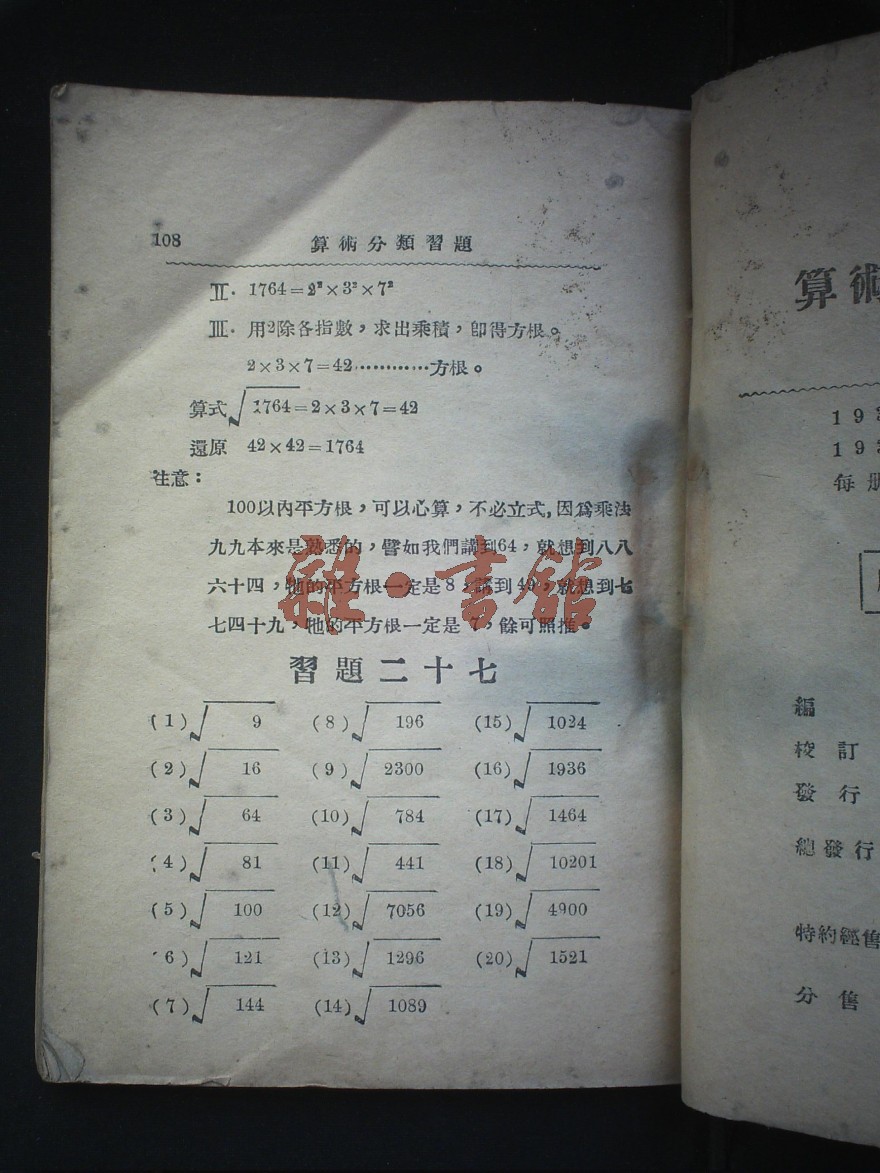 108 算術分類習題
II. 1764=2²×3²×7²
III. 用2除各指數，求出乘積，卽得方根。
2×3×7=42…………方根。
算式√1764=2×3×7=42
還原 42×42=1764
注意：
100以內平方根，可以心算，不必立式,因爲乘法
九九本來是熟悉的，譬如我們講到64，就想到八八
六十四，牠的平方根一定是8；講到49，就想到七
七四十九，牠的平方根一定是7，餘可照推。
雜·書館
習題二十七
(1)√9 (8)√196 (15)√1024
(2)√16 (9)√2300 (16)√1936
(3)√64 (10)√784 (17)√1464
(4)√81 (11)√441 (18)√10201
(5)√100 (12)√7056 (19)√4900
(6)√121 (13)√1296 (20)√1521
(7)√144 (14)√1089
算術
19
19
每册
編
校訂
發行
總發行
特約經售
分售